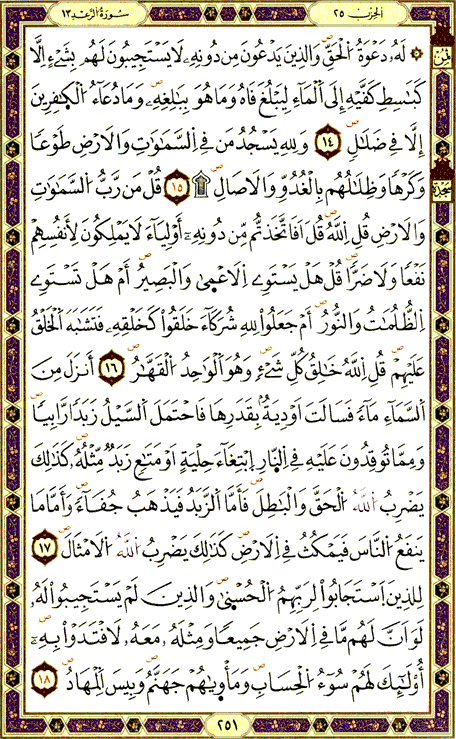 الحزب ٢٥
سورة الرعد ١٣
ثمن
۞ لَهُۥ دَعْوَةُ الْحَقِّ وَالذِينَ يَدْعُونَ مِن دُونِهِۦ لَا يَسْتَجِيبُونَ لَهُم بِشَيْءٍ اِلَّا
كَبَٰسِطِ كَفَّيْهِ إِلَى الْمَآءِ لِيَبْلُغَ فَاهُ وَمَا هُوَ بِبَٰلِغِهِۦ وَمَا دُعَآءُ الْكٰ۪فِرِينَ
إِلَّا فِے ضَلَٰلٍ ١٤ وَلِلهِ يَسْجُدُ مَن فِے السَّمَٰوَٰتِ وَالَارْضِ طَوْعاً
وَكَرْهاً وَظِلَٰلُهُم بِالْغُدُوِّ وَالَاصَالِ ۩ ١٥ قُلْ مَن رَّبُّ السَّمَٰوَٰتِ
سجدة
وَالَارْضِ قُلِ اللَّهُ قُلَ اَفَاتَّخَذتُّم مِّن دُونِهِۦٓ أَوْلِيَآءَ لَا يَمْلِكُونَ لِأَنفُسِهِمْ
نَفْعاً وَلَا ضَرّاً قُلْ هَلْ يَسْتَوِے اِلَاعْمٰ۪ى وَالْبَصِيرُ أَمْ هَلْ تَسْتَوِے
اِلظُّلُمَٰتُ وَالنُّورُ أَمْ جَعَلُواْ لِلهِ شُرَكَآءَ خَلَقُواْ كَخَلْقِهِۦ فَتَشَٰبَهَ اَلْخَلْقُ
عَلَيْهِمْ قُلِ اللَّهُ خَٰلِقُ كُلِّ شَيْءٍ وَهُوَ الْوَٰحِدُ الْقَهَّٰرُ ١٦ أَنزَلَ مِنَ
اَلسَّمَآءِ مَآءً فَسَالَتَ اَوْدِيَةٌۢ بِقَدَرِهَا فَاحْتَمَلَ اَلسَّيْلُ زَبَداً رَّابِياً
وَمِمَّا تُوقِدُونَ عَلَيْهِ فِے اِلنّ۪ارِ اِبْتِغَآءَ حِلْيَةٍ اَوْ مَتَٰعٍ زَبَدٌ مِّثْلُهُۥ كَذَٰلِكَ
يَضْرِبُ اللَّهُ الْحَقَّ وَالْبَٰطِلَ فَأَمَّا اَلزَّبَدُ فَيَذْهَبُ جُفَآءً وَأَمَّا مَا
يَنفَعُ اُلنَّاسَ فَيَمْكُثُ فِے اِلَارْضِ كَذَٰلِكَ يَضْرِبُ اللَّهُ الَامْثَالَ ١٧
لِلذِينَ اَسْتَجَابُواْ لِرَبِّهِمُ الْحُسْنٰ۪ى وَالذِينَ لَمْ يَسْتَجِيبُواْ لَهُۥ
لَوَ اَنَّ لَهُم مَّا فِے اِلَارْضِ جَمِيعاً وَمِثْلَهُۥ مَعَهُۥ لَافْتَدَوْاْ بِهِۦٓ
أُوْلَٰٓئِكَ لَهُمْ سُوٓءُ اُلْحِسَابِ وَمَأْو۪يٰهُمْ جَهَنَّمُ وَبِيسَ اَلْمِهَادُ ١٨
٢٥١